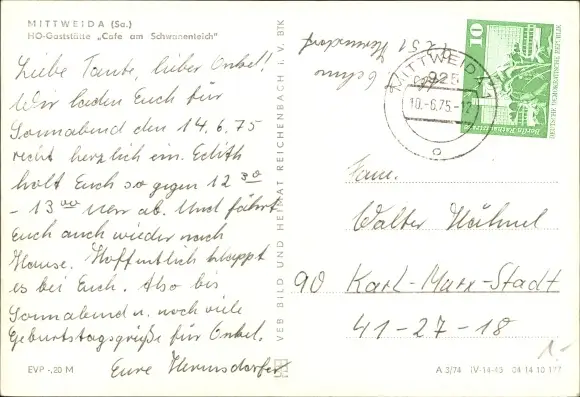 MITTWEIDA (Sa.)
HO-Gaststätte „Cafe am Schwanenteich"
Liebe Tante, lieber Onkel!
Wir laden Euch für
Sonnabend den 14.6.75
recht herzlich ein. Edith
holt Euch so gegen 12 30
- 13 00 Uhr ab. Und fährt
Euch auch wieder nach
Hause. Hoffentlich klappt
es bei Euch. Also bis
Sonnabend u. noch viele
Geburtstagsgrüße für Onkel.
Eure Hermsdorfer
EVP -,20 M
VEB BILD UND HEIMAT REICHENBACH i. V. BTK
9251 Hermsdorf
MITTWEIDA 1
925
10.-6.75.-12
c
10
DEUTSCHE DEMOKRATISCHE REPUBLIK
Fam.
Walter Hähnel
90 Karl-Marx-Stadt
41-27-18
1.-
A 3/74 IV-14-49 04 14 10 177